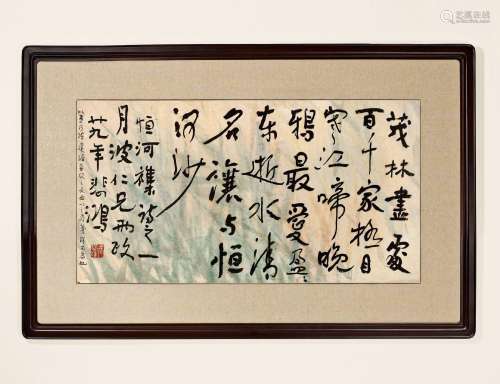 茂林盡處
百千家極目
寒江啼晚
鴉最愛盈〻
東逝水清
名讓与恒
河沙
恒河襍詩之一
月波仁兄兩政
廿九年悲鴻